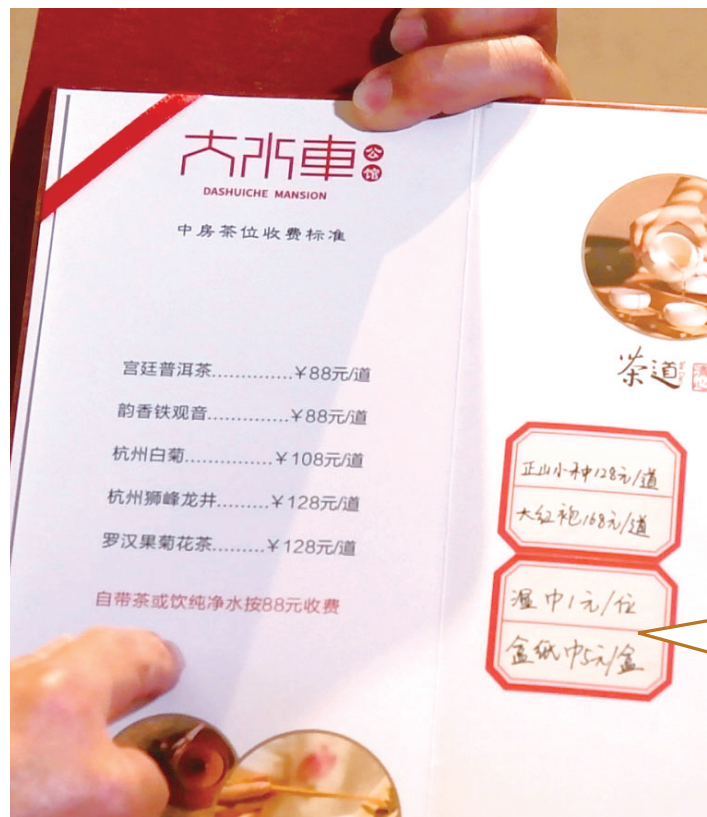 大水車
公馆
DASHUICHE MANSION
中房茶位收费标准
宫廷普洱茶..............￥88元/道
韵香铁观音..............￥88元/道
杭州白菊...............￥108元/道
杭州狮峰龙井.........￥128元/道
罗汉果菊花茶.........￥128元/道
自带茶或饮纯净水按88元收费
茶道
正山小种128元/道
大红袍168元/道
湿巾1元/位
盒纸巾5元/盒